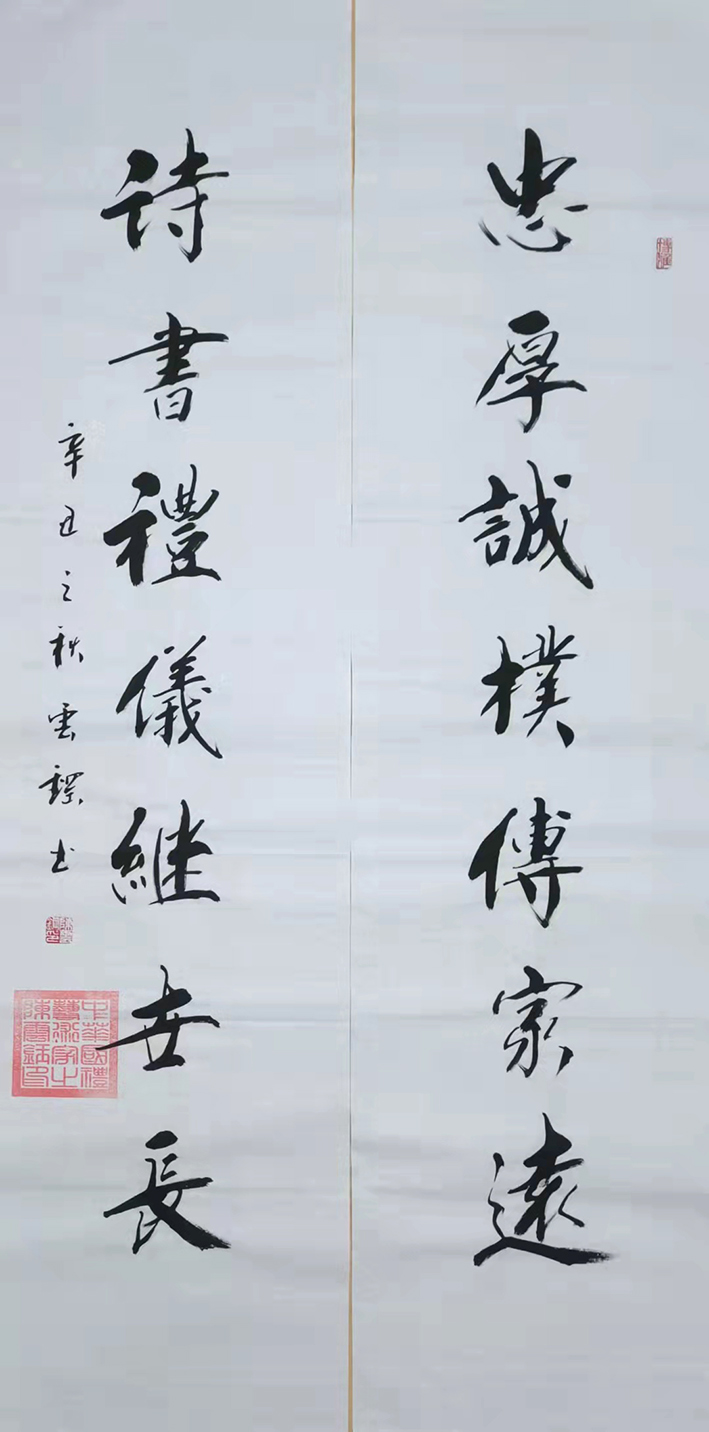 忠厚誠樸傳家遠
詩書禮儀継世長
辛丑之秋雲
書
中華國禮
藝術家之
陳雲
印